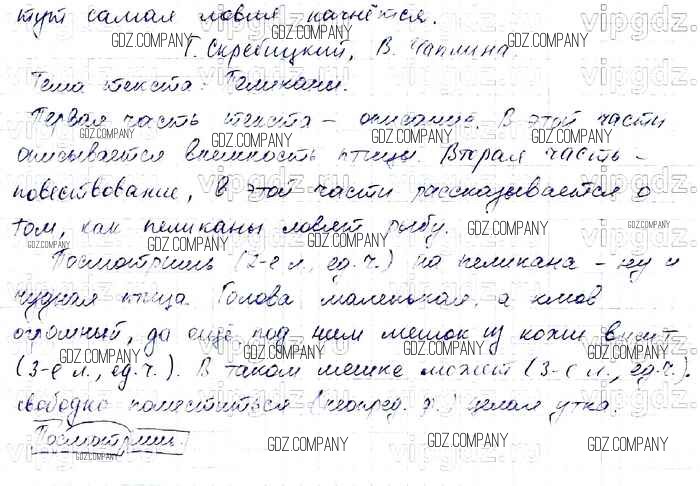 тут самая ловля начнётся.
Г. Скребицкий, В. Чаплина
Тема текста: Пеликаны.
Первая часть текста - описание. В этой части
описывается внешность птицы. Вторая часть -
повествование, в этой части рассказывается о
том, как пеликаны ловят рыбу.
Посмотришь (2-е л., ед.ч.) на пеликана - ну и
чудная птица. Голова маленькая, а клюв
огромный, да ещё под ним мешок из кожи висит
(3-е л., ед.ч.). В таком мешке может (3-е л., ед.ч.)
свободно поместиться (неопред. ф.) целая утка.
Посмотришь.